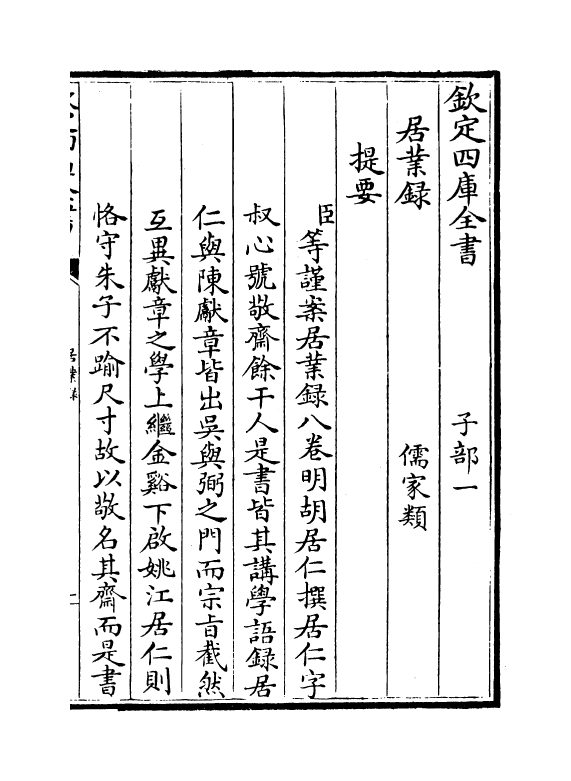 欽定四庫全書　子部一
居業録　儒家類
提要
臣等謹案居業録八卷明胡居仁撰居仁字
叔心號敬齋餘干人是書皆其講學語録居
仁與陳獻章皆出吳與弼之門而宗旨截然
互異獻章之學上繼金谿下啟姚江居仁則
恪守朱子不踰尺寸故以敬名其齋而是書